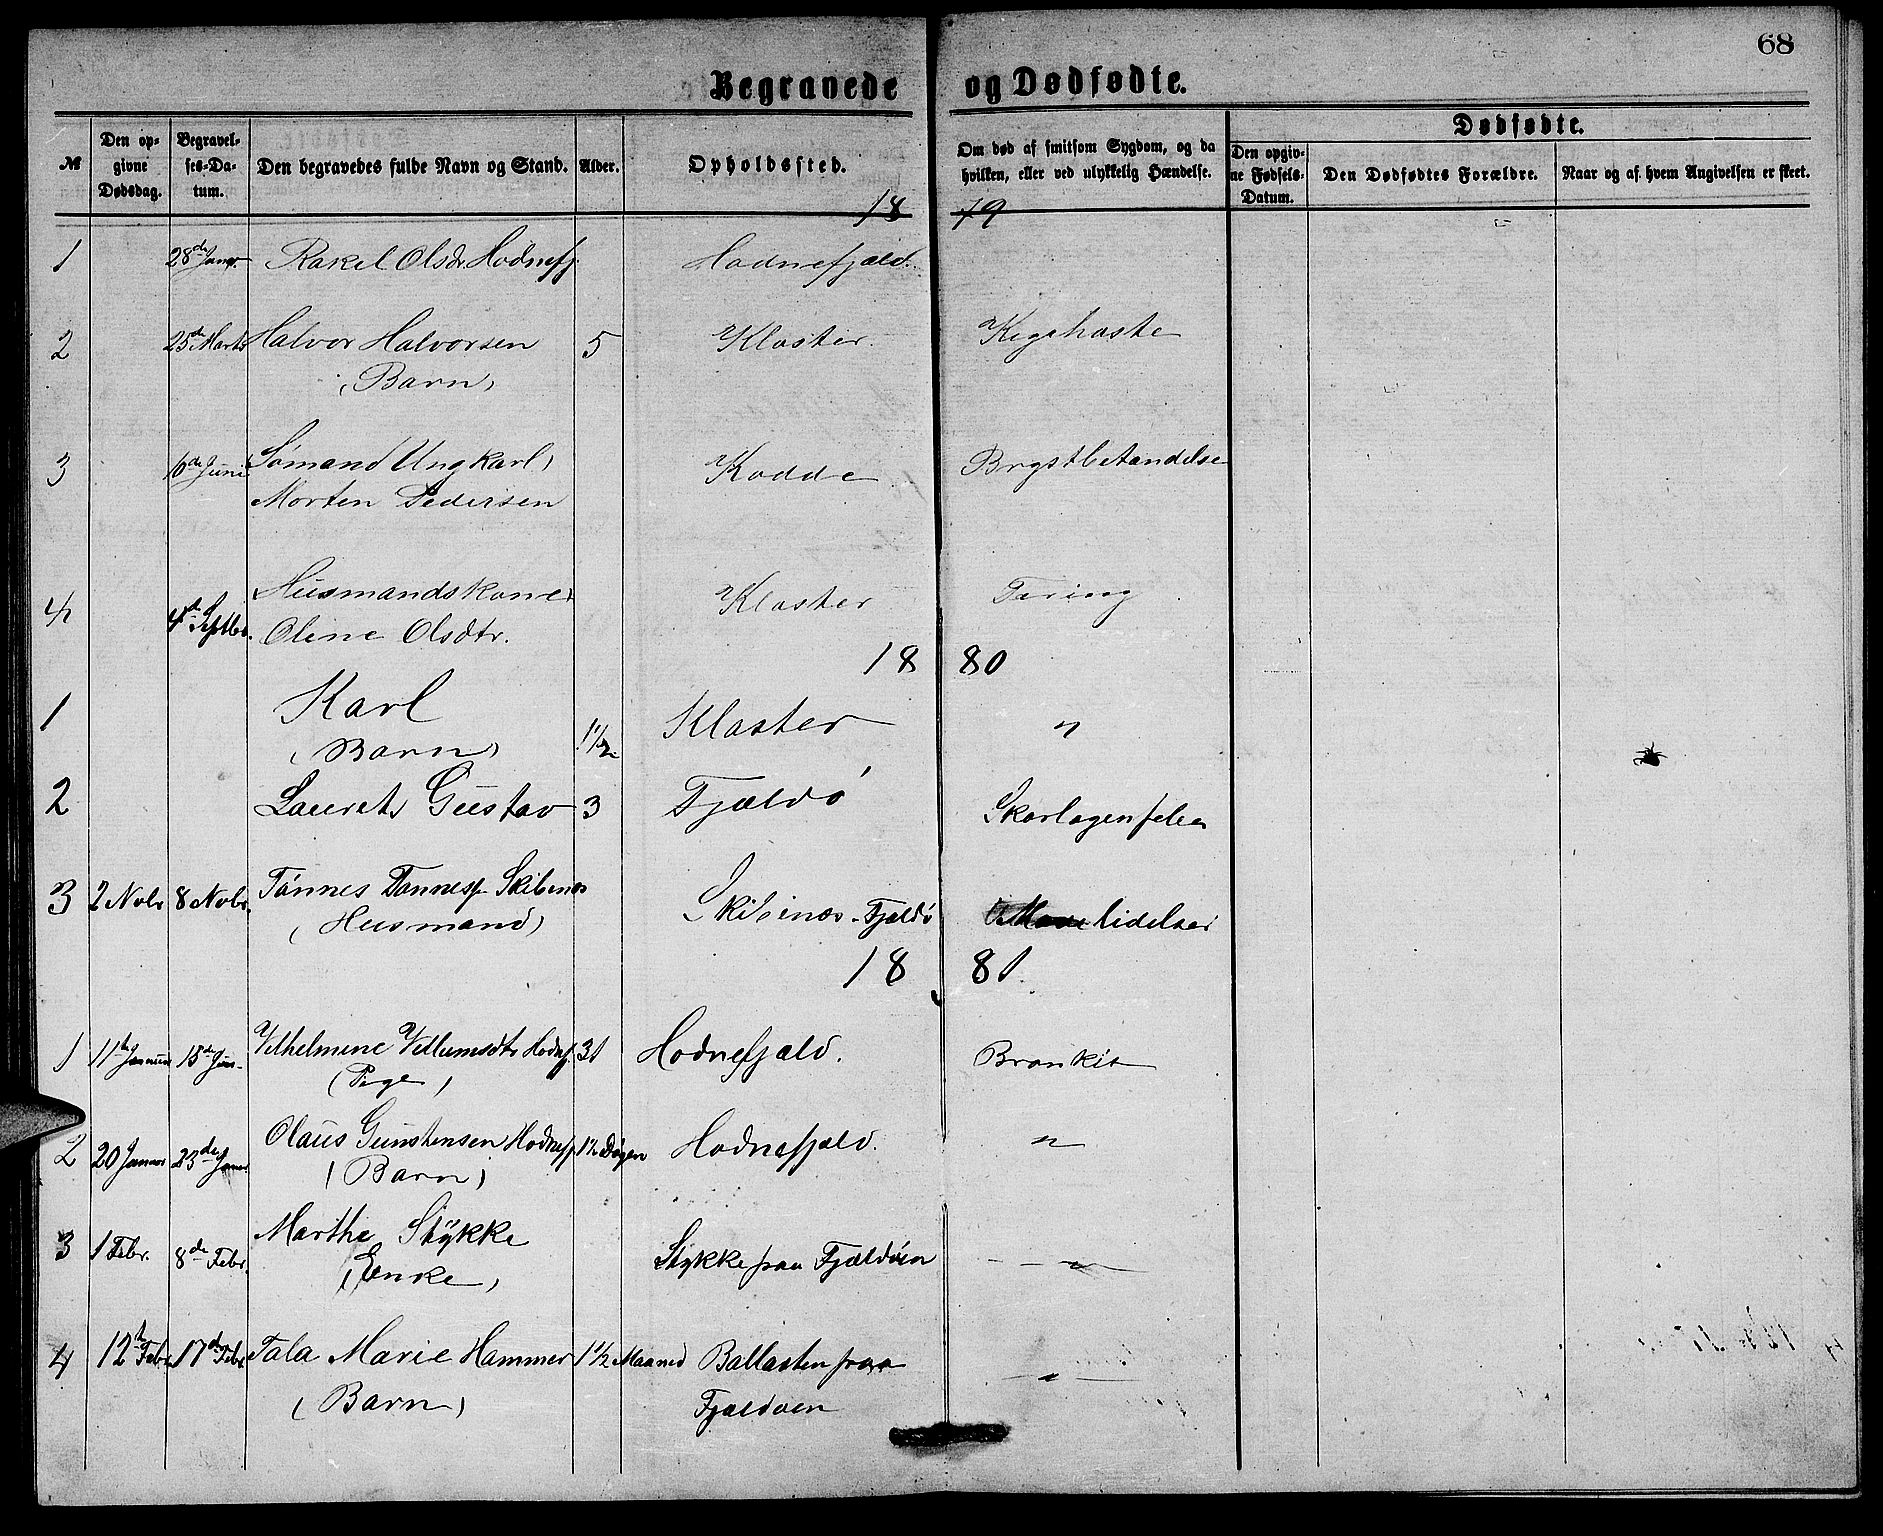 68
Begravede og Dødfødte.
№ | Den opgivne Dødsdag. | Begravelses-Datum. | Den begravedes fulde Navn og Stand. | Alder. | Opholdssted. | Om død af smitsom Sygdom, og da hvilken, eller ved ulykkelig Hændelse. | Dødfødte. | Den opgivne Fødsels-Datum. | Den Dødfødtes Forældre. | Naar og af hvem Angivelsen er skeet.
18 79
1 28de Janr. Rakel Olsdr. Hodnefj. Hodnefjæld.
2 25de Marts Halvor Halvorsen 5 Kloster. Kighoste
(Barn)
3 10de Juni Sømand Ungkarl, Kodde Brystbetændelse
Morten Pedersen
4 4de Septbr. Husmandskone, Kloster Tæring
Oline Olsdtr.
18 80
1 Karl Kloster "
(Barn) 1½
2 Laurets Gustav 3 Fjældø Skarlagenfeber
3 2 Nobr 8 Nobr. Tønnes Tønnes. Skibenæs Skibenæs - Fjældø lidelser
(Husmand)
18 81.
1 11te Januar 15de Jan. Vilhelmine Villumsdtr Hodnefj. 31 Hodnefjæld. Bronkit
(Pige)
2 20 Januar 23de Janr Olaus Gunstensen Hodnefj. 1½ Døgen Hodnefjæld. "
(Barn)
3 1 Febr. 8de Febr. Marthe Stykke Stykke paa Fjældøen - - " -
(Enke)
4 12te Febr 17de Febr Tala Marie Hammer 1½ Maaned Ballasten paa - " -
(Barn) Fjældøen